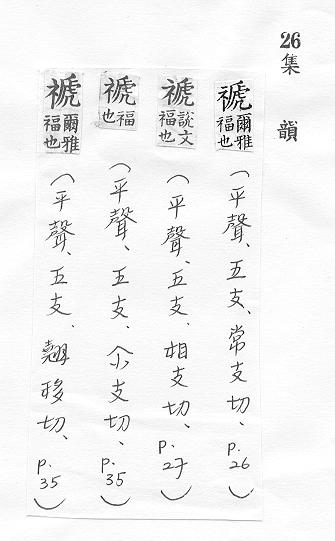 26集韻
禠爾雅福也（平聲、五支、常支切、p.26）
禠說文福也（平聲、五支、相支切、p.27）
禠福也（平聲、五支、支切、p.35）
禠爾雅福也（平聲、五支、翹移切、p.35）